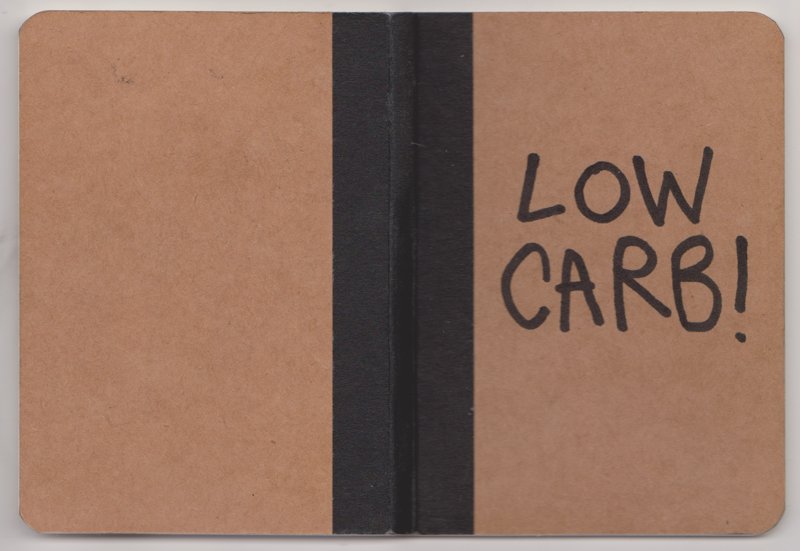 LOW
CARB!